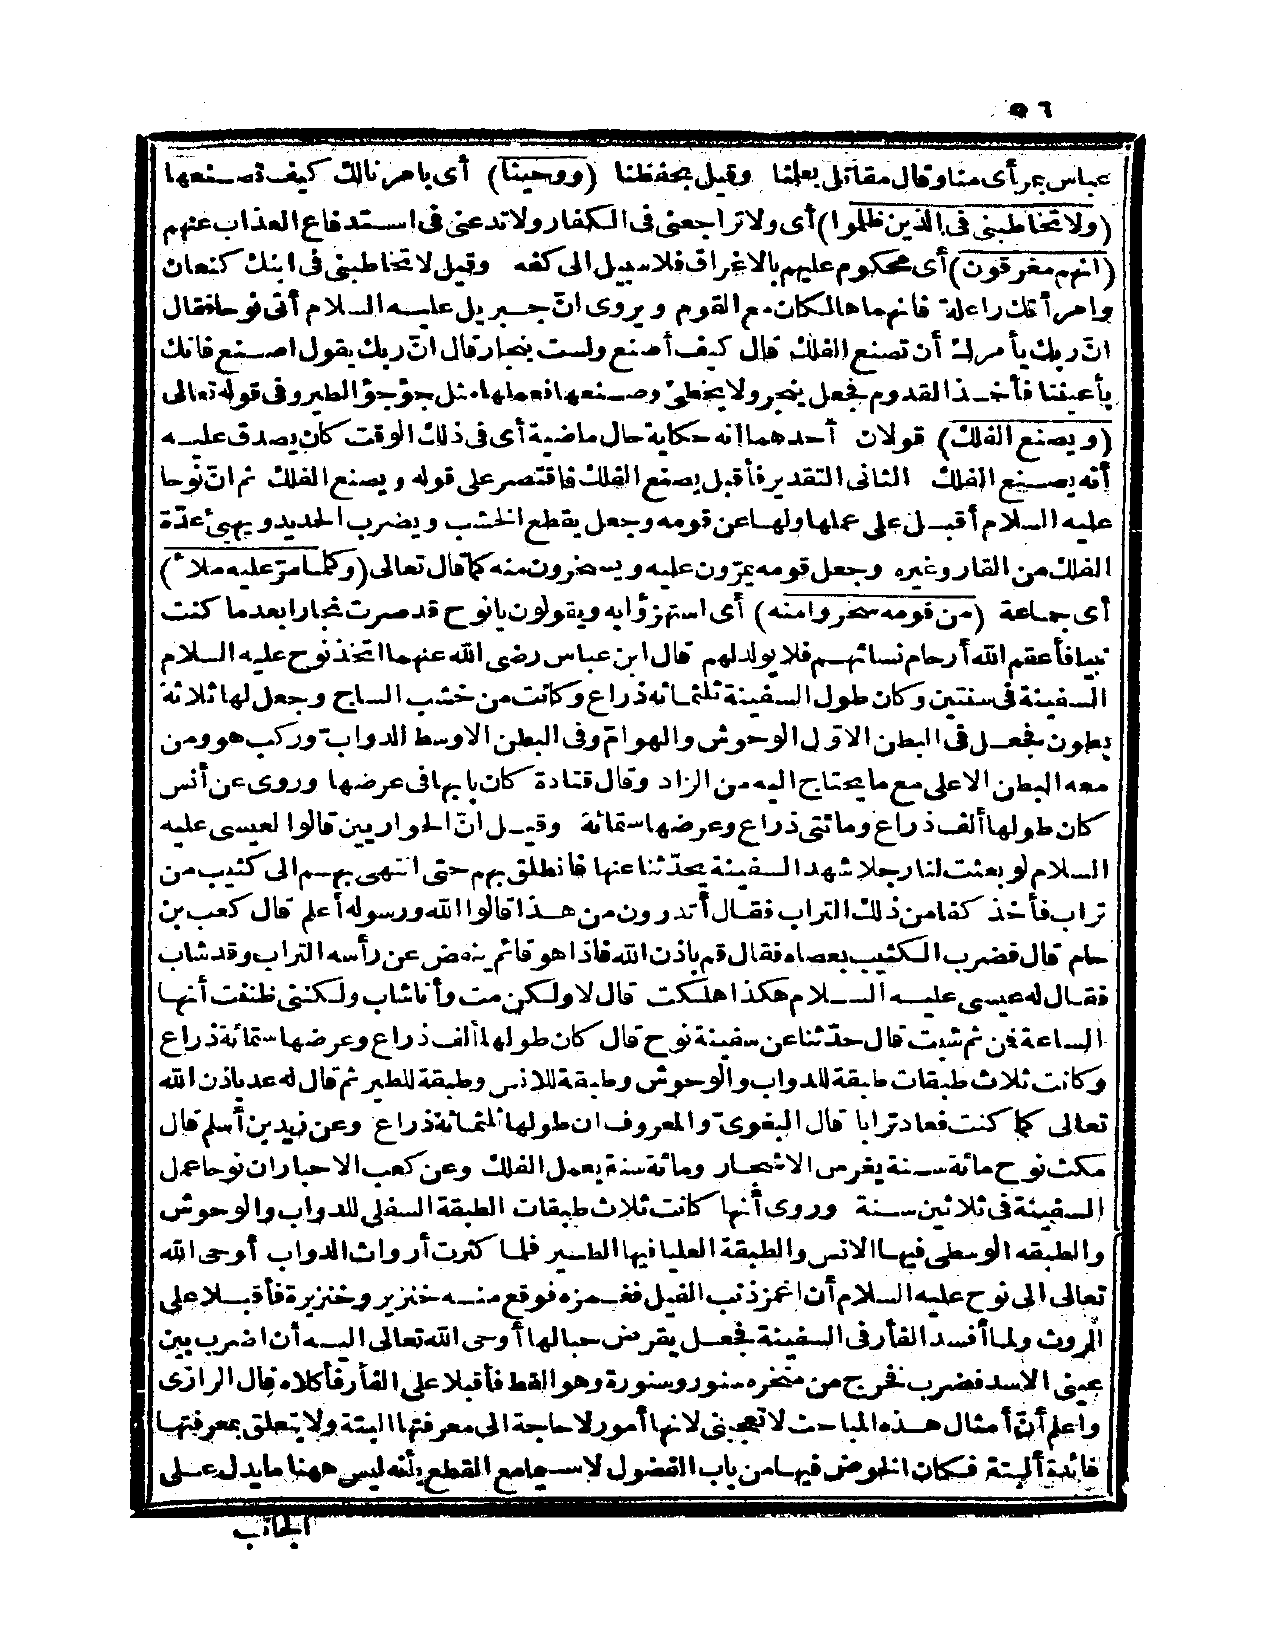 ٥٦
عباس بمرأى منا وقال مقاتل بعلمنا وقيل بحفظنا (ووحينا) أى بأمرنا لك كيف تصنعها
(ولا تخاطبنى فى الذين ظلموا) أى ولا تراجعنى فى الكفار ولا تدعنى فى استدفاع العذاب عنهم
(انهم مغرقون) أى محكوم عليهم بالاغراق فلا سبيل الى كفه وقيل لا تخاطبنى فى ابنك كنعان
وامرأتك راعلة فانهما هالكان مع القوم ويروى انّ جبريل عليه السلام أتى نوحا فقال
انّ ربك يأمرك أن تصنع الفلك قال كيف أصنع ولست بنجار قال انّ ربك يقول اصنع فانك
بأعيننا فأخذ القدوم فجعل ينجر ولا يخطئ وصنعها فعملها مثل جؤجؤ الطير وفى قوله تعالى
(ويصنع الفلك) قولان أحدهما انه حكاية حال ماضية أى فى ذلك الوقت كان يصدق عليه
أنه يصنع الفلك الثانى التقدير فأقبل يصنع الفلك فاقتصر على قوله ويصنع الفلك ثم انّ نوحا
عليه السلام أقبل على عملها ولها عن قومه وجعل يقطع الخشب ويضرب الحديد ويهيئ عدّة
الفلك من القار وغيره وجعل قومه يمرّون عليه ويسخرون منه كما قال تعالى (وكلما مرّ عليه ملأ)
أى جماعة (من قومه سخروا منه) أى استهزؤا به ويقولون يا نوح قد صرت نجارا بعدما كنت
نبيا فأعقم الله أرحام نسائهم فلا يولد لهم قال ابن عباس رضى الله عنهما اتخذ نوح عليه السلام
السفينة فى سنتين وكان طول السفينة ثلثمائة ذراع وكانت من خشب الساج وجعل لها ثلاثة
بطون فجعل فى البطن الاوّل الوحوش والهوامّ وفى البطن الاوسط الدوابّ وركب هو ومن
معه البطن الاعلى مع ما يحتاج اليه من الزاد وقال قتادة كان بابها فى عرضها وروى عن أنس
كان طولها ألف ذراع ومائتى ذراع وعرضها ستمائة وقيل انّ الحواريين قالوا لعيسى عليه
السلام لو بعثت لنا رجلا شهد السفينة يحدّثنا عنها فانطلق بهم حتى انتهى بهم الى كثيب من
تراب فأخذ كفا من ذلك التراب فقال أتدرون من هذا قالوا الله ورسوله أعلم قال كعب بن
حام قال فضرب الكثيب بعصاه فقال قم باذن الله فاذا هو قائم ينفض عن رأسه التراب وقد شاب
فقال له عيسى عليه السلام هكذا هلكت قال لا ولكن مت وأنا شاب ولكنى ظننت أنها
الساعة فمن ثم شبت قال حدّثنا عن سفينة نوح قال كان طولها ألف ذراع وعرضها ستمائة ذراع
وكانت ثلاث طبقات طبقة للدواب والوحوش وطبقة للانس وطبقة للطير ثم قال له عد باذن الله
تعالى كما كنت فعاد ترابا قال البغوىّ والمعروف ان طولها ثلثمائة ذراع وعن زيد بن أسلم قال
مكث نوح مائة سنة يغرس الاشجار ومائة سنة يعمل الفلك وعن كعب الاحبار ان نوحا عمل
السفينة فى ثلاثين سنة وروى أنها كانت ثلاث طبقات الطبقة السفلى للدواب والوحوش
والطبقه الوسطى فيها الانس والطبقة العليا فيها الطير فلما كثرت أرواث الدواب أوحى الله
تعالى الى نوح عليه السلام أن اغمز ذنب الفيل فغمزه فوقع منه خنزير وخنزيرة فأقبلا على
الروث ولما أفسد الفأر فى السفينة فجعل يقرض حبالها أوحى الله تعالى اليه أن اضرب بين
عينى الاسد فضرب فخرج من منخره سنور وسنورة وهو القط فأقبلا على الفأر فأكلاه قال الرازى
واعلم أنّ أمثال هذه المباحث لا تعجبنى لانها أمور لا حاجة الى معرفتها البتة ولا يتعلق بمعرفتها
فائدة ألبتة فكان الخوض فيها من باب الفضول لا سيما مع القطع بأنه ليس ههنا ما يدل على
الجانب